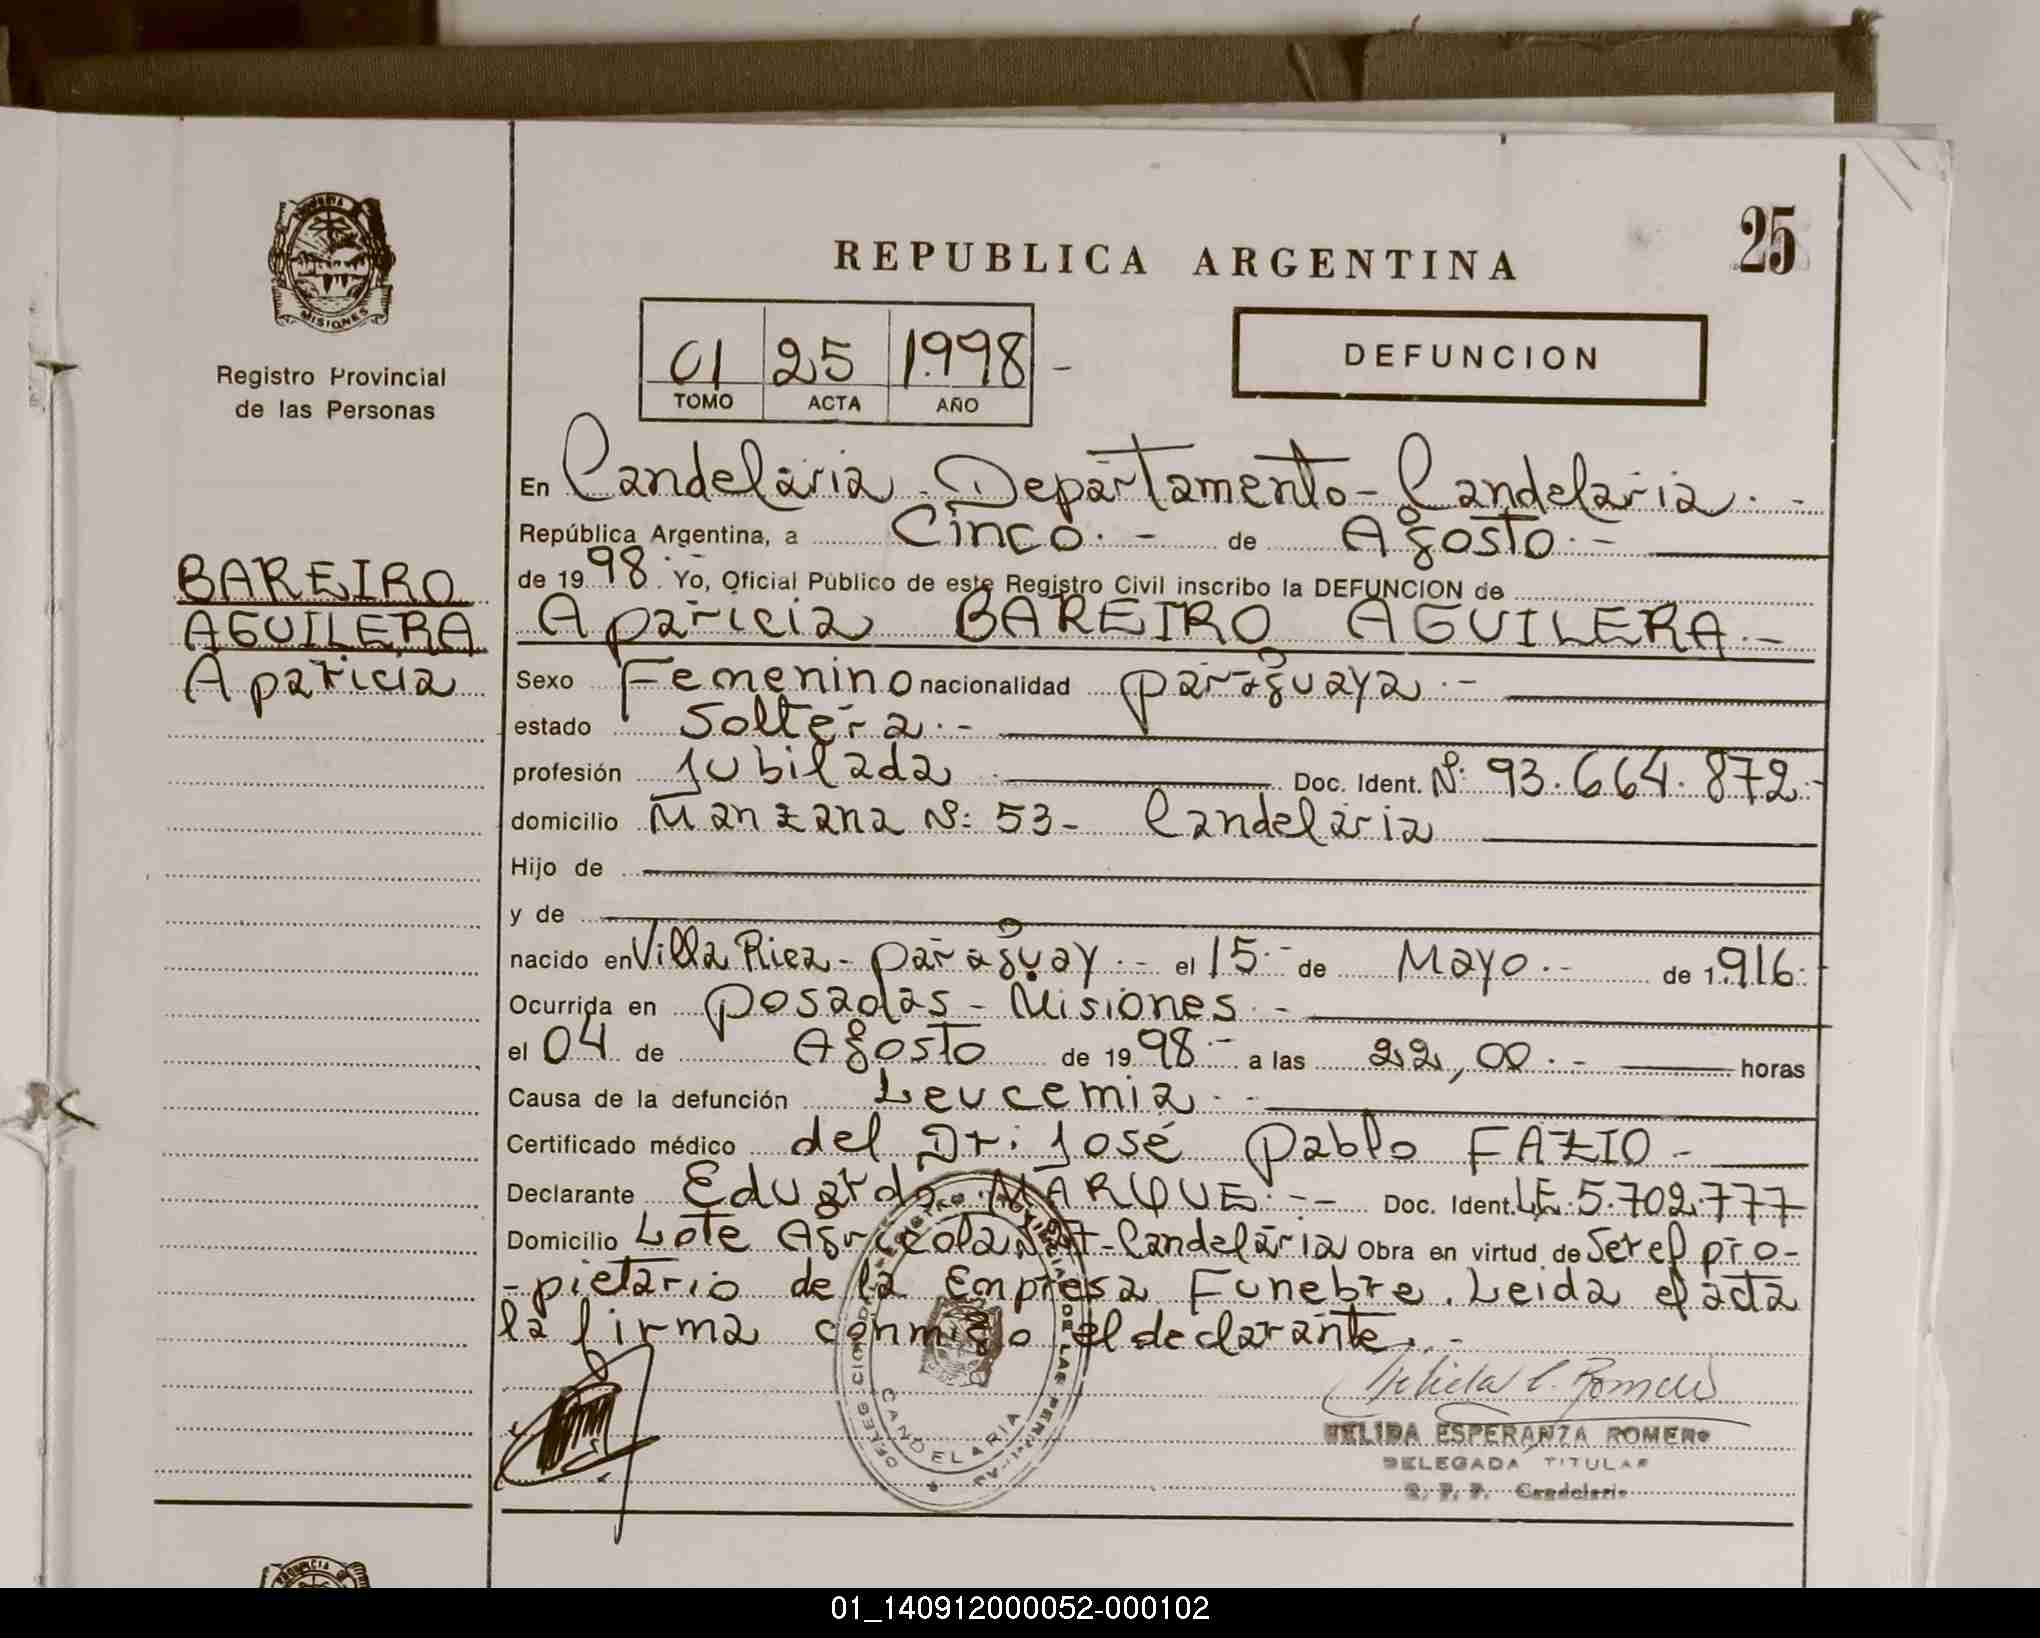 PROVINCIA
MISIONES
Registro Provincial
de las Personas
BAREIRO
AGUILERA
Aparicia
25
REPUBLICA ARGENTINA
01 25 1.998 -
TOMO ACTA AÑO
DEFUNCION
En Candelaria - Departamento - Candelaria. -
República Argentina, a Cinco. - de Agosto. -
de 19 98. Yo, Oficial Público de este Registro Civil inscribo la DEFUNCION de
Aparicia BAREIRO AGUILERA. -
Sexo Femenino nacionalidad paraguaya. -
estado Soltera. -
profesión Jubilada. Doc. Ident. Nº: 93.664.872. -
domicilio Manzana Nº: 53 - Candelaria
Hijo de
y de
nacido en Villa Rica - paraguay. - el 15. - de Mayo. - de 1.916.
Ocurrida en posadas - Misiones. -
el 04 de Agosto de 19 98. - a las 22,00. - horas
Causa de la defunción Leucemia. -
Certificado médico del Dr: José Pablo FAZIO -
Declarante Eduardo MARQUE. - - Doc. Ident. LE: 5.702.777
Domicilio Lote Agrícola - Candelaria Obra en virtud de Ser el pro-
-pietario de la Empresa Funebre. Leida el acta
la firma conmigo el declarante. -
CANDELARIA
NELIDA ESPERANZA ROMERO
DELEGADA TITULAR
R. P. P. Candelaria
01_140912000052-000102